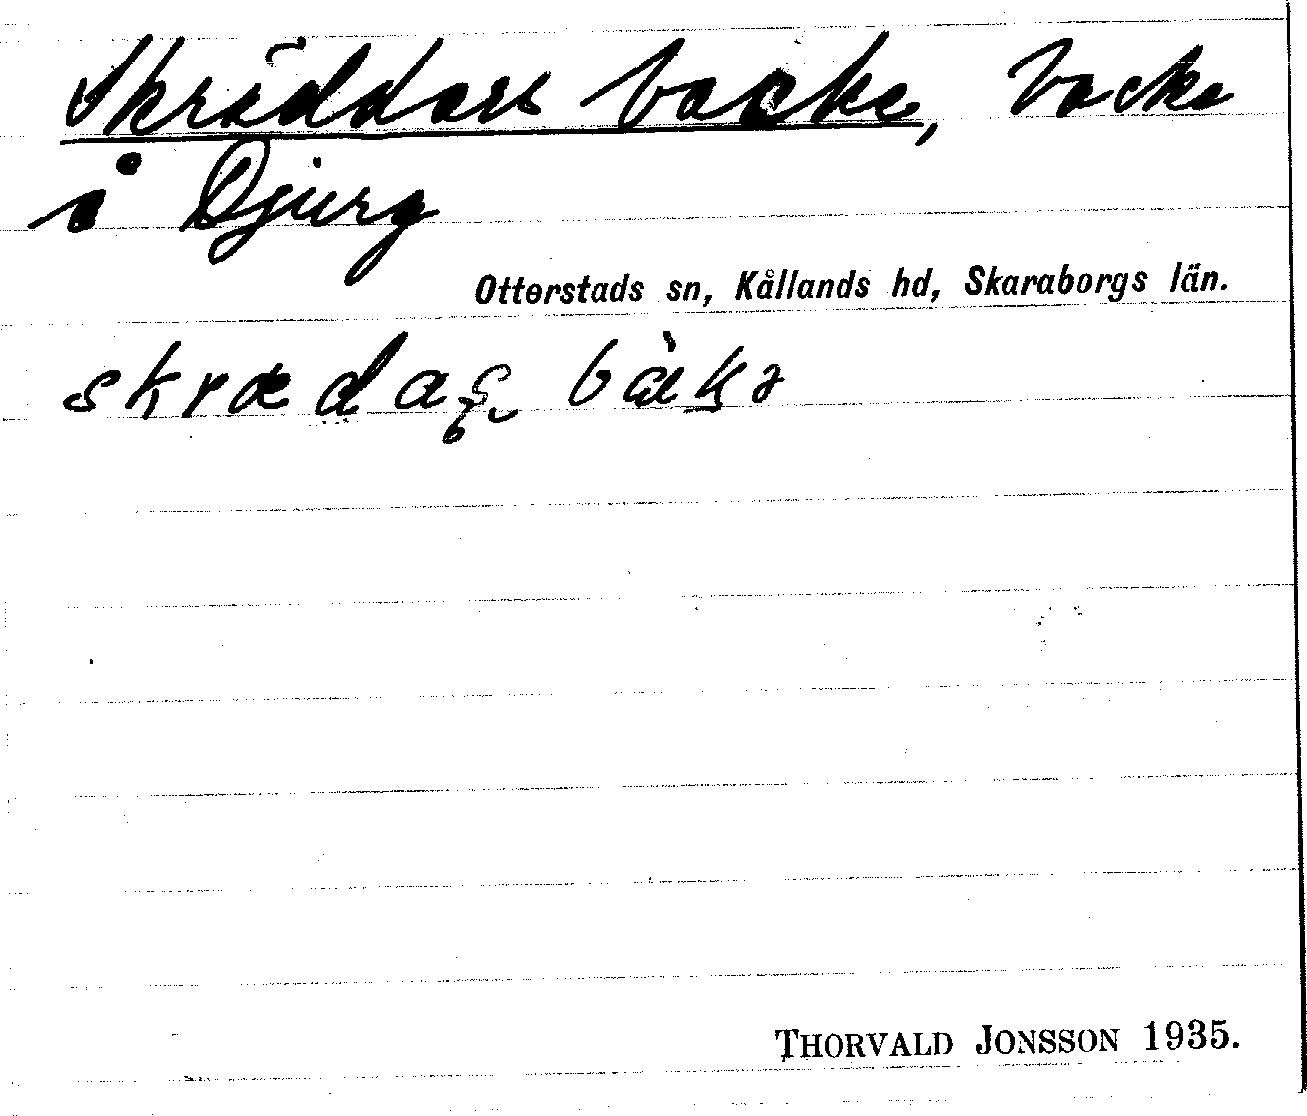 Skräddars backe, backe
i Djurg
Otterstads sn, Kållands hd, Skaraborgs län.
THORVALD JONSSON 1935.